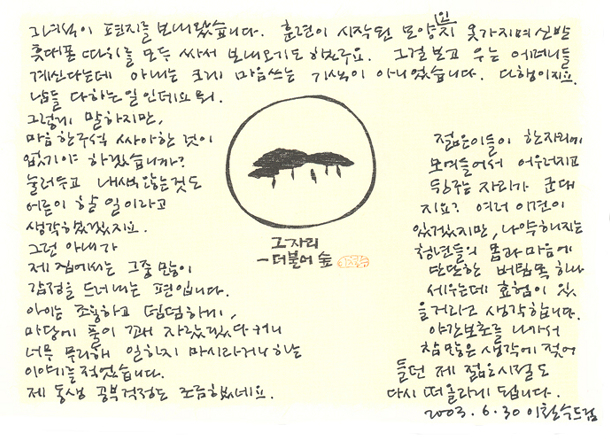 그녀석이 편지를 보내왔습니다. 훈련이 시작된 모양인지 옷가지며 신발
휴대폰 따위를 모두 싸서 보내오기도 하였구요. 그걸 보고 우는 어머니들
계신다는데 아내는 크게 마음쓰는 기색이 아니었습니다. 다행이지요.
남들 다하는 일인데요 뭐.
그렇게 말하지만,
마음 한구석 싸아한 것이
없기야 하겠습니까?
눌러두고 내색않는것도
어른이 할 일이라고
생각했겠지요.
그런 아내가
제 집에서는 그중 많이
감정을 드러내는 편입니다.
아이는 조용하고 덤덤하게,
마당에 풀이 꽤 자랐겠다거니
너무 무리해 일하지 마시라거니 하는
이야기를 적었습니다.
제 동생 공부걱정도 조금했네요.
그 자리
- 더불어 숲
젊은이들이 한자리에
모여들어서 어우러지고
뒹구는 자리가 군대
지요? 여러 이견이
있겠지만, 나약해지는
청년들의 몸과 마음에
단단한 버팀목 하나
세우는데 효험이 있
을거라고 생각합니다.
약간보초를 나가서
참 많은 생각에 젖어
들던 제 젊은시절도
다시 떠올리게 됩니다.
2003. 6. 30 이철수 드림